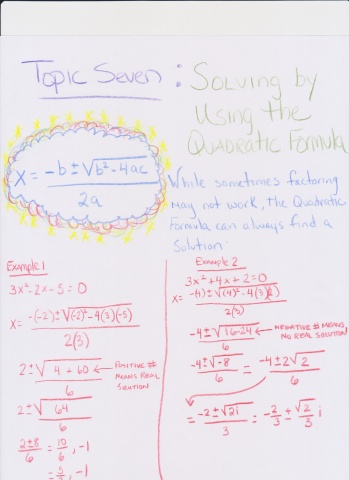 Topic Seven : Solving by
Using the
QUADRATIC FORMULA
x = -b ± √b² - 4ac
2a
While sometimes factoring
may not work, the Quadratic
Formula can always find a
Solution.
Example 1
3x² - 2x - 5 = 0
x = -(-2) ± √(-2)² - 4(3)(-5)
2(3)
2 ± √4 + 60 ← POSITIVE #
MEANS REAL
SOLUTION
6
2 ± √64
6
2 ± 8 = 10, -1
6 6
= 5, -1
Example 2
3x² + 4x + 2 = 0
x = -4) ± √(4)² - 4(3)(2)
2(3)
-4 ± √16-24 ← NEGATIVE # MEANS
NO REAL SOLUTION
6
-4 ± √-8 = -4 ± 2√2
6 6
= -2 ± √2i = -2 ± √2 i
3 3 3